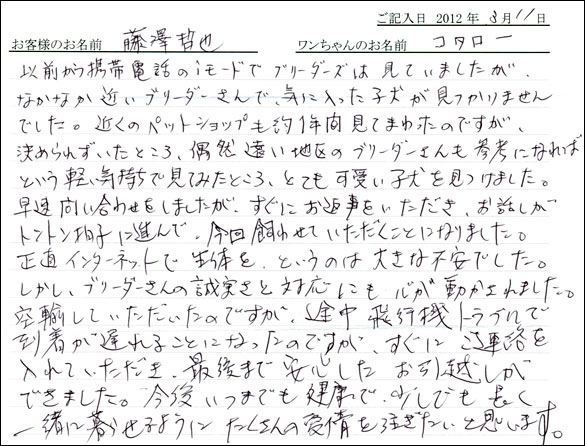 ご記入日 2012年 3月11日
お客様のお名前 藤澤哲也 ワンちゃんのお名前 コタロー
以前から携帯電話のiモードでブリーダーズは見ていましたが、
なかなか近いブリーダーさんで気に入った子犬が見つかりません
でした。近くのペットショップも約1年間見てまわったのですが、
決められずいたところ、偶然遠い地区のブリーダーさんも参考になれば
という軽い気持ちで見てみたところ、とても可愛い子犬を見つけました。
早速問い合わせをしましたが、すぐにお返事をいただき、お話しが
トントン拍子に進んで、今回飼わせていただくことになりました。
正直インターネットで生体を、というのは大きな不安でした。
しかし、ブリーダーさんの誠実さと対応にも心が動かされました。
空輸していただいたのですが、途中飛行機トラブルで
到着が遅れることになったのですが、すぐにご連絡を
入れていただき、最後まで安心したお引越しが
できました。今後いつまでも健康で、少しでも長く
一緒に暮らせるようにたくさんの愛情を注ぎたいと思います。